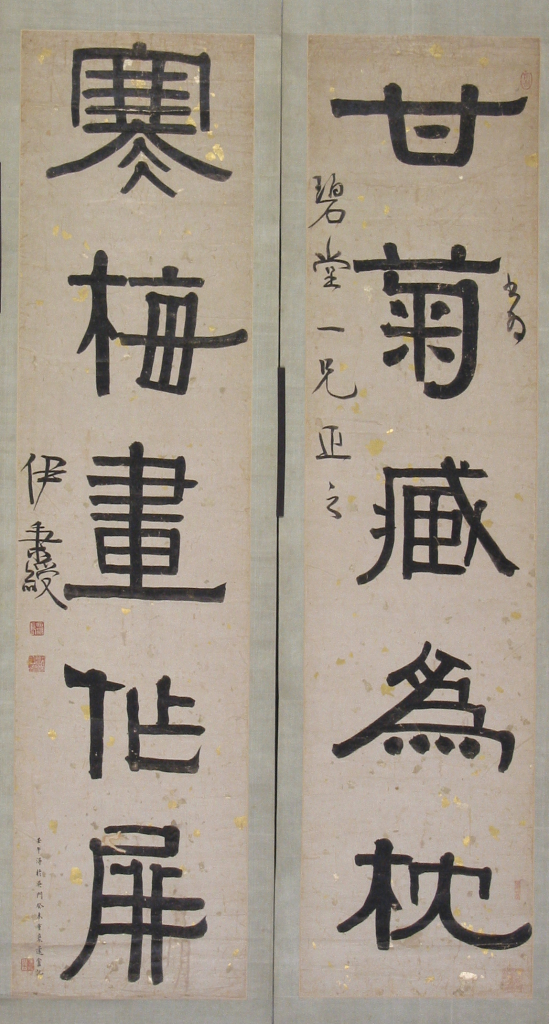 甘菊臧為枕
書為
碧堂一兄正之
寒梅畫作屏
伊秉綬